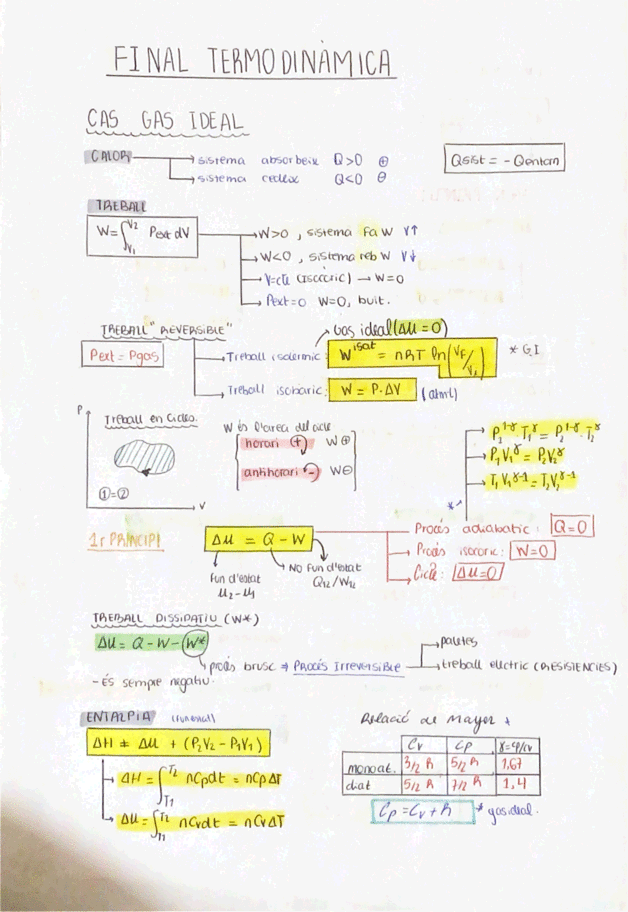 FINAL TERMODINÀMICA
CAS GAS IDEAL
CALOR → sistema absorbeix Q>0 ⊕
→ sistema cedeix Q<0 ⊖
Qsist = - Qentorn
TREBALL
W = ∫_V₁^V₂ Pext dV
→ W>0, sistema fa W V↑
→ W<0, sistema reb W V↓
→ V=cte (ISOCÒRIC) → W=0
→ Pext=0 W=0, buit.
TREBALL "REVERSIBLE"
Gas ideal (ΔU = 0)
Pext = Pgas
→ Treball isotermic: W^isot = nRT ln(VF/Vi) * G.I
→ Treball isobaric: W = P·ΔV (atm·L)
P
Treball en Cicles.
①=②
V
W és l'area del cicle
horari (+) W⊕
antihorari (-) W⊖
→ P₁^1-γ T₁^γ = P₂^1-γ · T₂^γ
→ P₁V₁^γ = P₂V₂^γ
→ T₁V₁^γ-1 = T₂V₂^γ-1
*
1r PRINCIPI
ΔU = Q - W
fun d'estat
U₂-U₁
NO fun d'estat
Q₁₂/W₁₂
→ Procés adiabatic: Q=0
→ Procés isocoric: W=0
→ Cicle: ΔU=0
TREBALL DISSIPATIU (W*)
ΔU = Q - W - W*
→ procés brusc ⇒ Procés Irreversible
→ paletes
→ treball electric (RESISTENCIES)
- és sempre negatiu.
ENTALPIA
ΔH = ΔU + (P₂V₂ - P₁V₁)
→ ΔH = ∫_T₁^T₂ nCpdt = nCpΔT
→ ΔU = ∫_T₁^T₂ nCvdt = nCvΔT
Relació de Mayer *
Cv Cp γ=Cp/Cv
monoat. 3/2 R 5/2 R 1,67
diat 5/2 R 7/2 R 1,4
Cp = Cv + R * gas ideal.